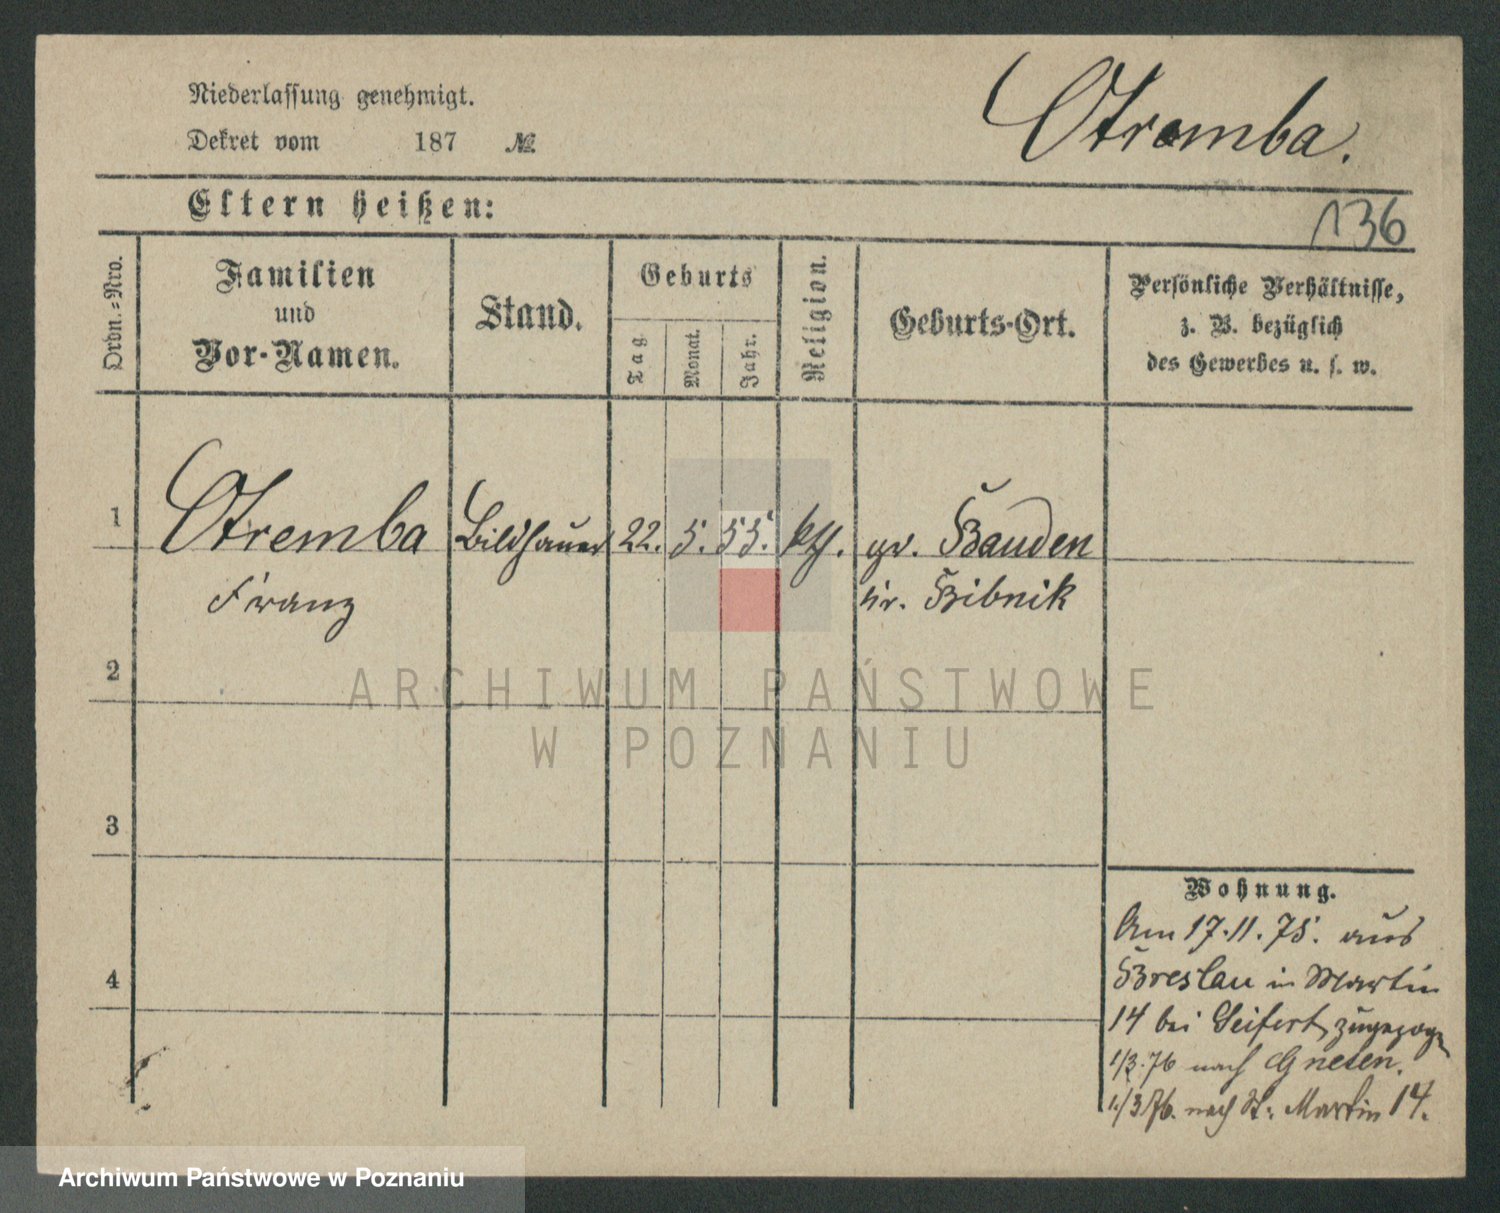 Niederlassung genehmigt.
Otremba.
Dekret vom 187 №.
Eltern heißen:
136
Ordn.-Nro.
Familien
und
Vor-Namen.
Stand.
Geburts
Tag.
Monat.
Jahr.
Religion.
Geburts-Ort.
Persönliche Verhältnisse,
z. B. bezüglich
des Gewerbes u. s. w.
1
Otremba
Franz
Bildhauer
22.
5.
55.
kth.
gr. Bauden
kr. Ribnik
2
3
4
ARCHIWUM PAŃSTWOWE
W POZNANIU
Wohnung.
Am 17.11.75. aus
Breslau in Martin
14 bei Seifert, zugezog
1/3.76 nach Gnesen.
1./3 76. nach St. Martin 14.
Archiwum Państwowe w Poznaniu